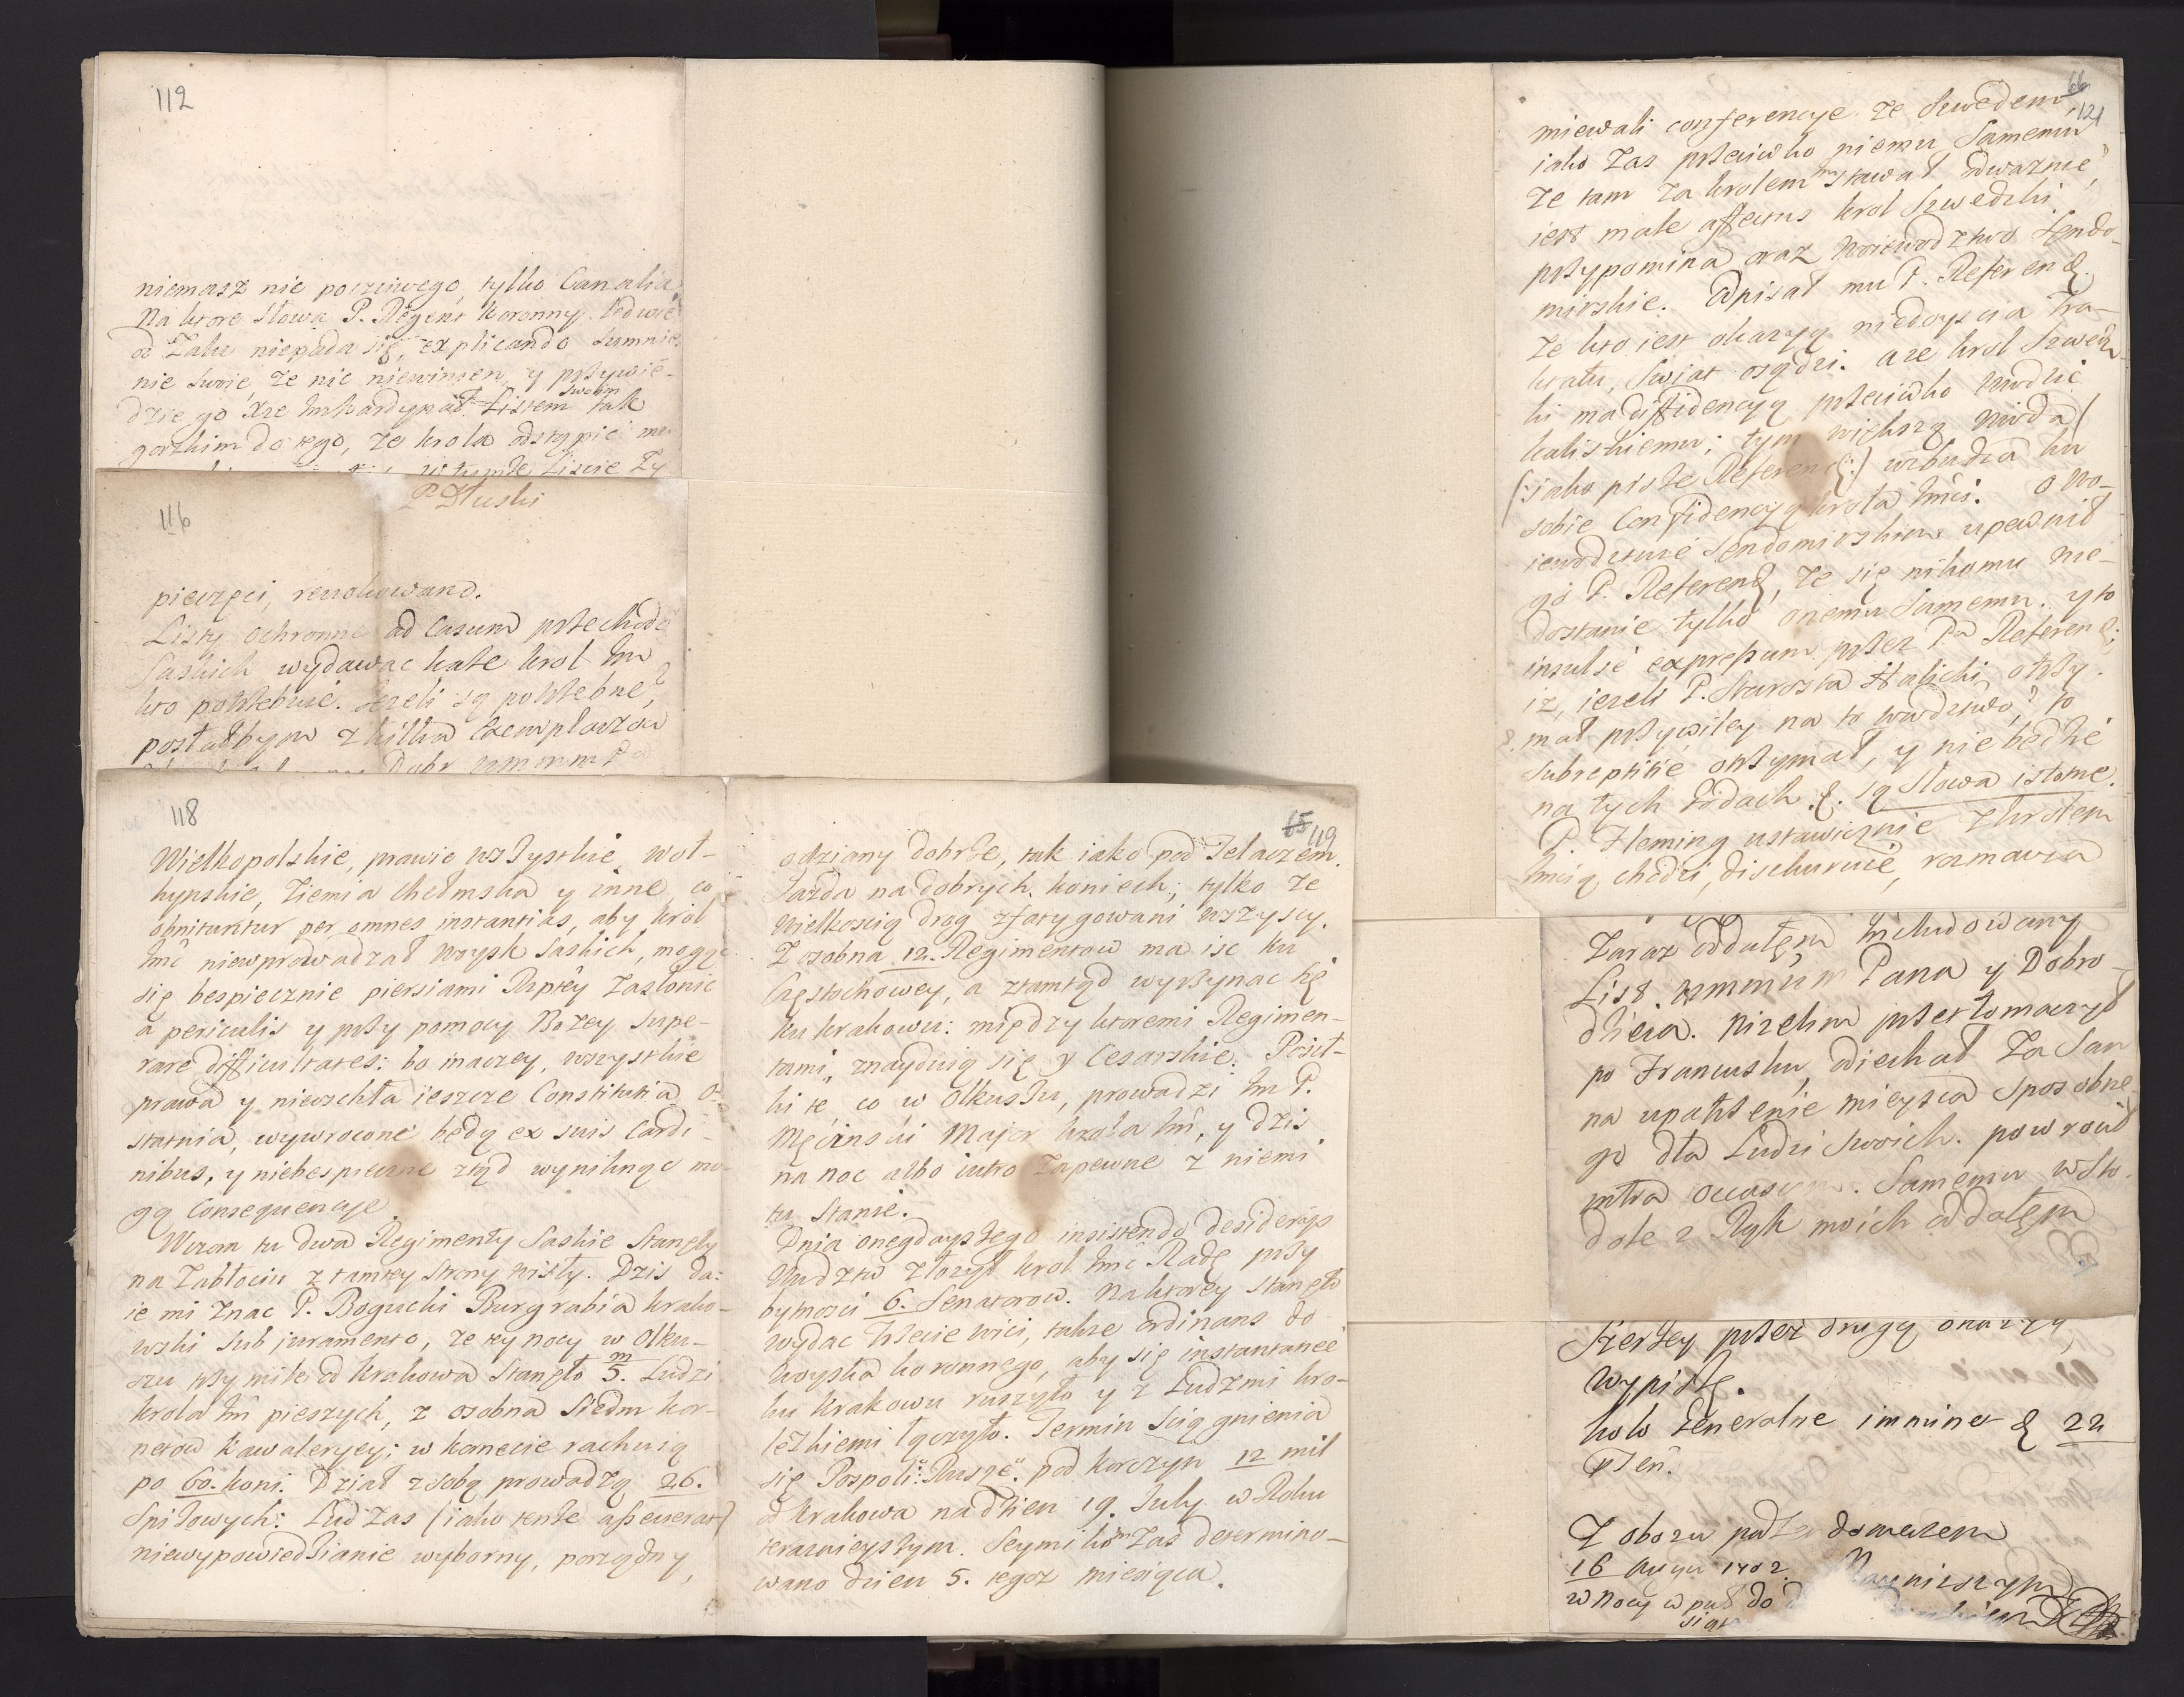 112
niemasz nic poczciwego, tylko Canalia
Na ktore słowa P. Regent Koronny ledwie
od żalu niepada się, explicando sumnie-
nie swoie, że nic niewinien, y przywie-
dzie go Xze Imk ardynał Listem swoim tak
gorzkim do tego, ze krola odstąpić
w tymże Liscie
116
P. Dłuski
pieczęci, rewokowano.
Listy ochronne ad Casum przechodu
Saskich wydawac każe krol Im
kto potrzebuie. Jezeli są potrzebne,
posłałbym z kilka Exemplarzow
Dobr
118
Wielkopolskie, prawie wszystkie, woł-
hynskie, Ziemia Chełmska y inne, co
obnituntur per omnes instantias, aby krol
Imć niewprowadzał woysk Saskich, mogąc
się bespiecznie piersiami Rptey zasłonic
a periculis y przy pomocy Bozey supe-
rare difficultates: bo inaczey, wszystkie
prawa y nieoschła ieszcze Constitutia o-
statnia, wywrocone będą ex suis Cardi-
nibus, y niebespieczne ztąd wyniknąc mo-
gą Consequencye.
Wczora tu dwa Regimenty Saskie Stanęły
na Zabłociu z tamtey strony wisły. Dzis da-
ie mi znac P. Bogucki Burgrabia krako-
wski sub juramento, że tey nocy w Olku-
szu pięć mile od Krakowa Stanęło 5.m Ludzi
krola Im pieszych, z osobna siedm kor-
netow kawaleryey: w kornecie rachuią
po 60. koni. Dział z sobą prowadzą 26.
Spiżowych: Lud zas (iako tenże asseverat)
niewypowiedzianie wyborny, porządny,
65 119
odziany dobrze, tak iako pod Telaczem.
Jazda na dobrych koniech; tylko że
wielkoscią drog zfatygowani wszyscy.
Z osobna 12. Regimentow ma isc ku
Częstochowey, a ztamtąd wyrzynac się
ku krakowu: między ktoremi Regimen-
tami, znayduią się y Cesarskie. Posił-
ki te, co w Olkuszu, prowadzi Im P.
Męcinski Major krola Im, y dzis
na noc albo iutro zapewne z niemi
tu Stanie.
Dnia onegdayszego insistendo desideriis
Wudztw złozył krol Imć Radę przy
bytnosci 6. Senatorow. Na ktorey stanęło
wydac trzecie wici, także ordinans do
woyska koronnego, aby się instantanee
ku Krakowu ruszyło y z Ludzmi kro-
lewskiemi łączyło. Termin sciągnienia
się Pospoli: Rusze: pod Korczyn 12 mil
od Krakowa na dzien 19. July w Roku
teraznieyszym. Seymikom zas determino-
wano dzien 5. tegoz miesiąca.
66
121
miewali conferencye ze Szwedem,
iako zas przeciwko niemu samemu
że tam za krolem Im stawał odwaznie,
iest male affectus krol Szwedzki.
przypomina oraz Woiewodztwo Sendo-
mirskie. Odpisał mu P. Referend.
że kto iest okazyą niedoyscia tra-
ktatu, swiat osądzi. a ze krol Szwedz-
ki ma diffidencyą przeciwko Wudzie
kaliskiemu; tym większą Wda
(iako pisze Referend:) wzbudza ku
sobie Confidencyą krola Imci. O Wo-
iewodztwie Sendomirskim upewnił
go P. Referend, że się nikomu nie-
dostanie tylko onemu samemu. y to
insulse expressum przez Pa Referend;
iz, iezeli P. Starosta Halicki otrzy-
mał przywiley na to wwodztwo, to
subreptitie otrzymał, y nie będzie
na tych Godach &. są słowa istotne.
P. Fleming ustawicznie z krolem
Imcią chodzi, dischuruie, rozmawia
Zaraz oddałęm
List wmm Pana y Dobro-
dzieia. Nizelim przetłomaczył
po Francusku, odiechał za San
na upatrzenie mieysca sposobne-
go dla Ludzi swoich. powrocił
intra occasum. Samemu w Sto-
dole z Rąk moich oddałęm
Szerzey przez drugą okazyą,
wypiszę.
koło Generalne imminet & 22
pten.
Z obozu pod
16 Augu 1702
w nocy